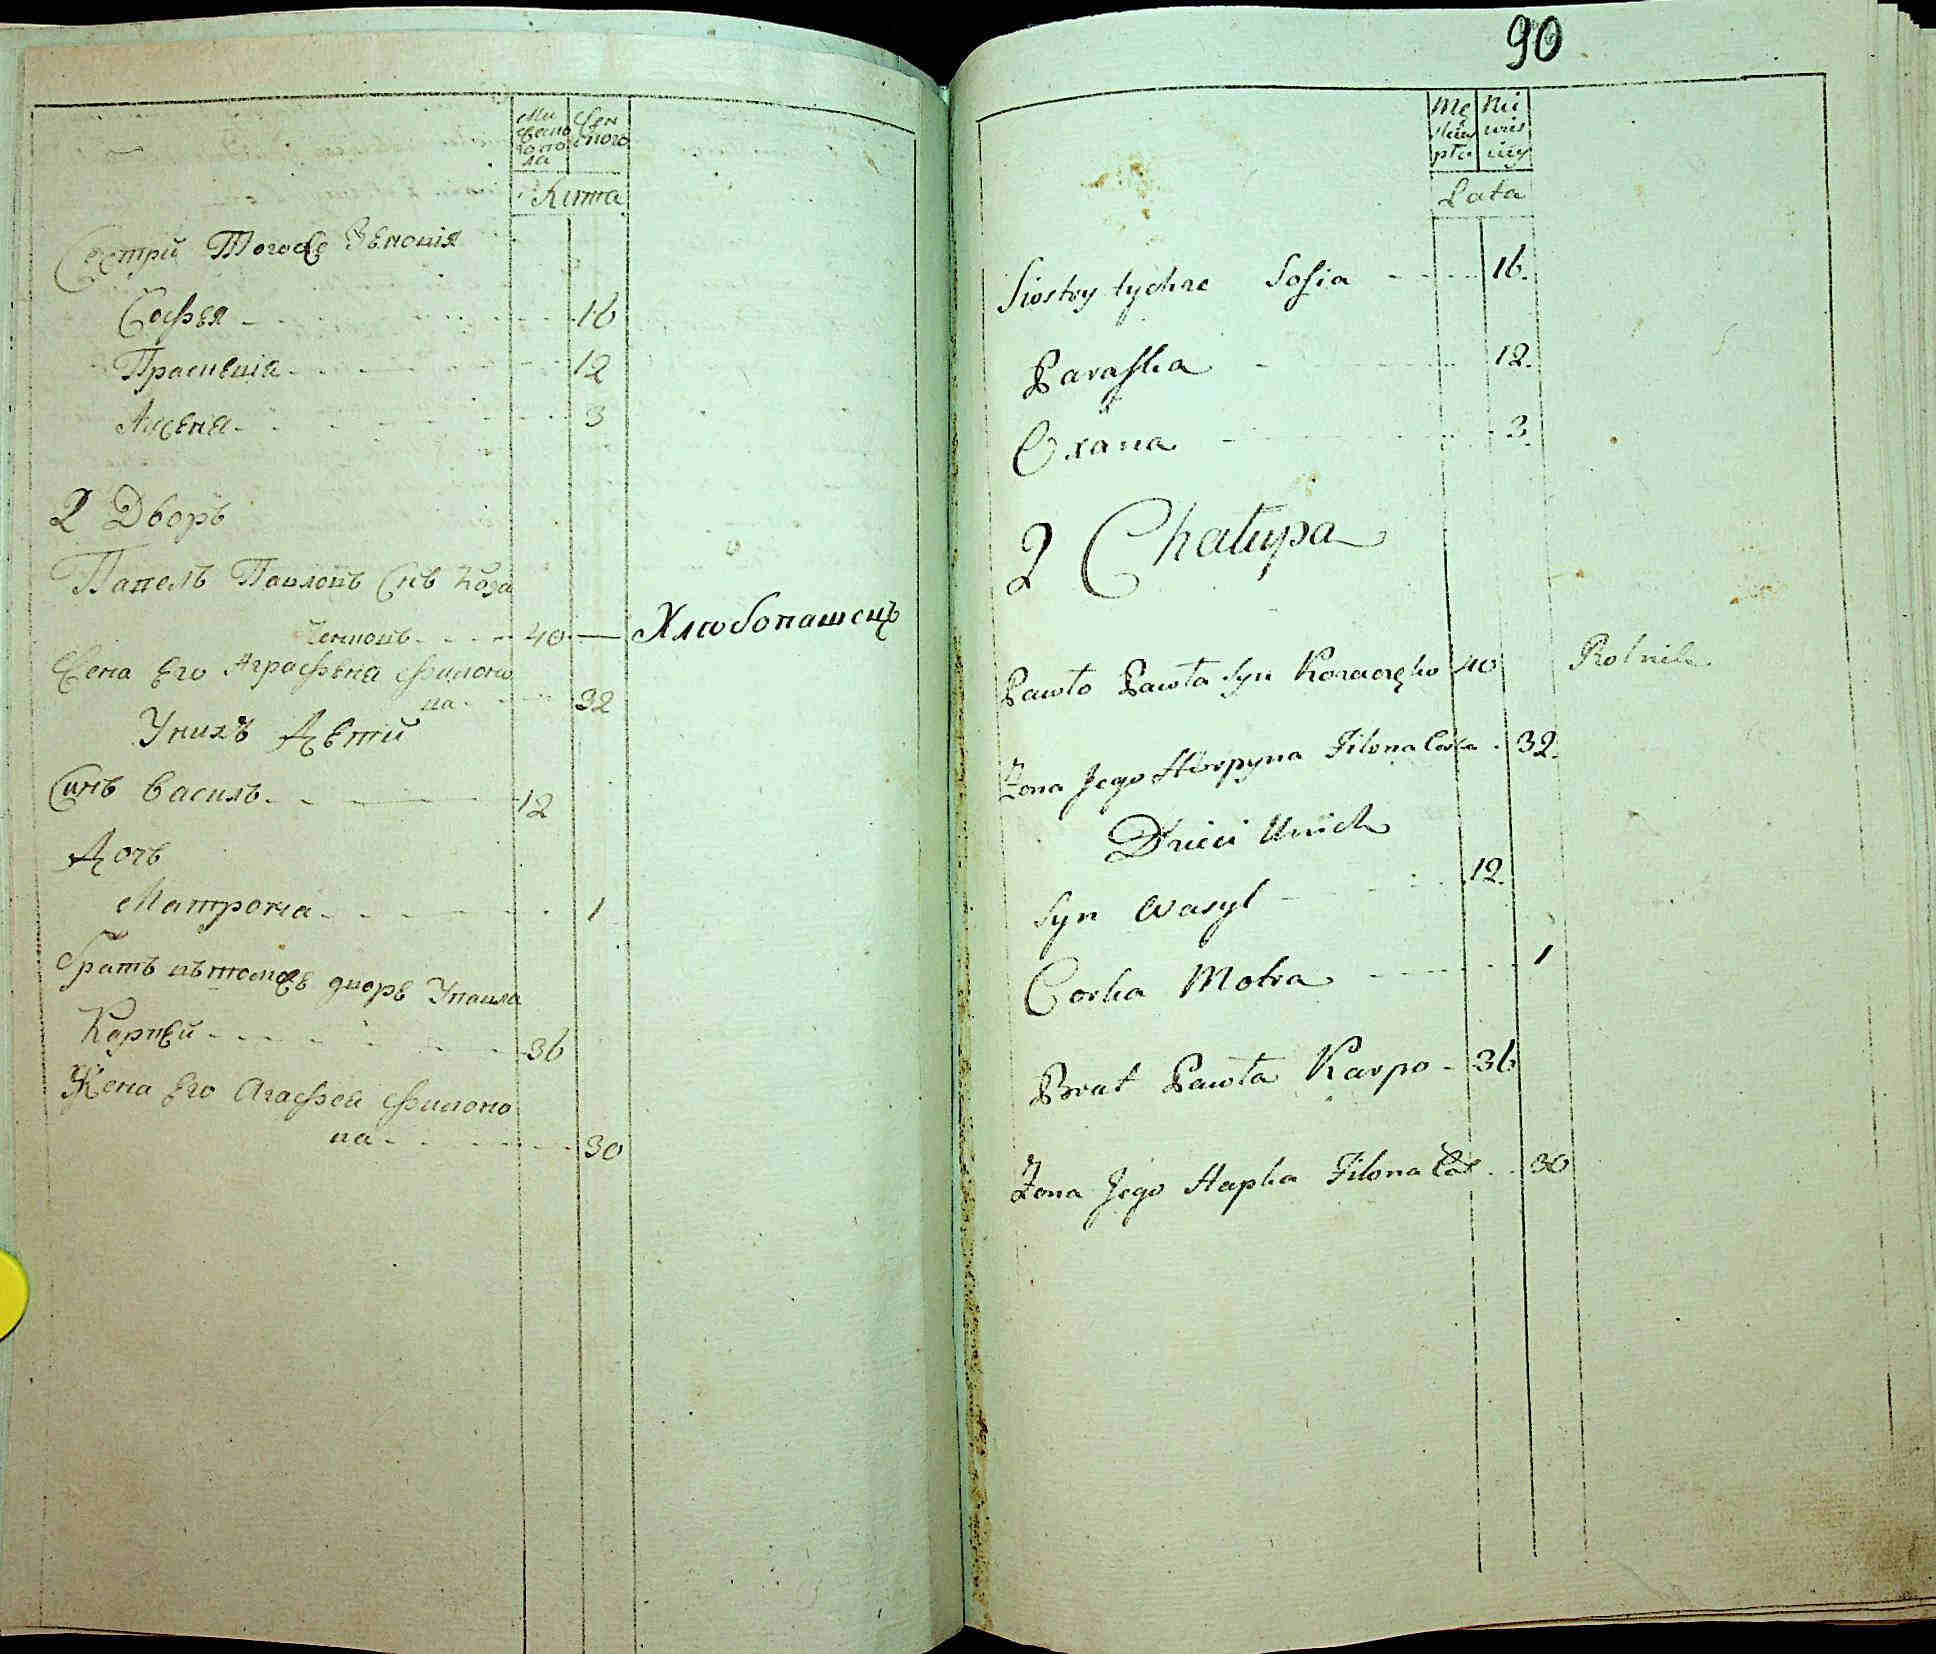 Му
жеско
го по
ла
Жен
ского
Лѣта
Сестри Тогоже Зѣновія
Софѣя 16
Прасковія 12
Аксѣна 3
2 Дворъ
Павелъ Павловъ Снъ Коза
ченковъ 40 Хлѣбопашецъ
Жена Его Аграфѣна Филоно
ва 32
Унихъ Дѣти
Синъ Василъ 12
Дочъ
Матрона 1
Братъ вътомжѣ дворѣ Упавла
Карпѣй 36
Жена Его Агафѣя Филоно
ва 30
90
Mę
skiey
płci
Ni
wieś
ciey
Lata
Siostry tychze Sofia 16.
Paraska 12.
Oxana 3.
2 Chałupa
Pawło Pawła Syn Kozaczęko 40 Rolnik
Zona Jego Horpyna Filona Corka 32.
Dzieci Unich
Syn Wasyl 12.
Corka Motra 1
Brat Pawła Karpo 36
Zona Jego Hapka Filona Cor 30